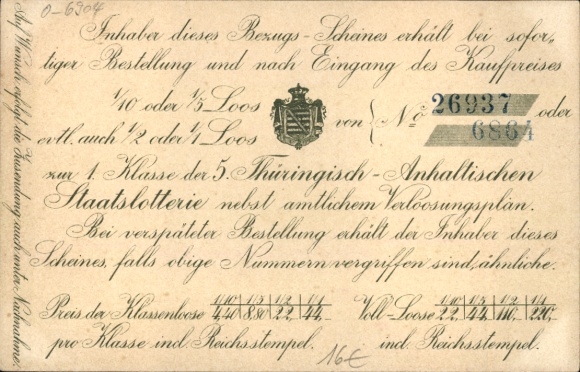 0-6904
Inhaber dieses Bezugs-Scheines erhält bei sofor-
tiger Bestellung und nach Eingang des Kaufpreises
1/10 oder 1/5 Loos
evtl. auch 1/2 oder 1/1 Loos
von { No 26937 oder
6864
zur 1. Klasse der 5. Thüringisch-Anhaltischen
Staatslotterie nebst amtlichem Verloosungsplan.
Bei verspäteter Bestellung erhält der Inhaber dieses
Scheines, falls obige Nummern vergriffen sind, ähnliche.
Preis der Klassenloose 1/10 1/5 1/2 1/1
4,40 8,80 22,- 44,-
pro Klasse incl. Reichsstempel.
Voll-Loose 1/10 1/5 1/2 1/1
22,- 44,- 110,- 220,-
incl. Reichsstempel.
16€
Auf Wunsch erfolgt die Zusendung auch unter Nachnahme.